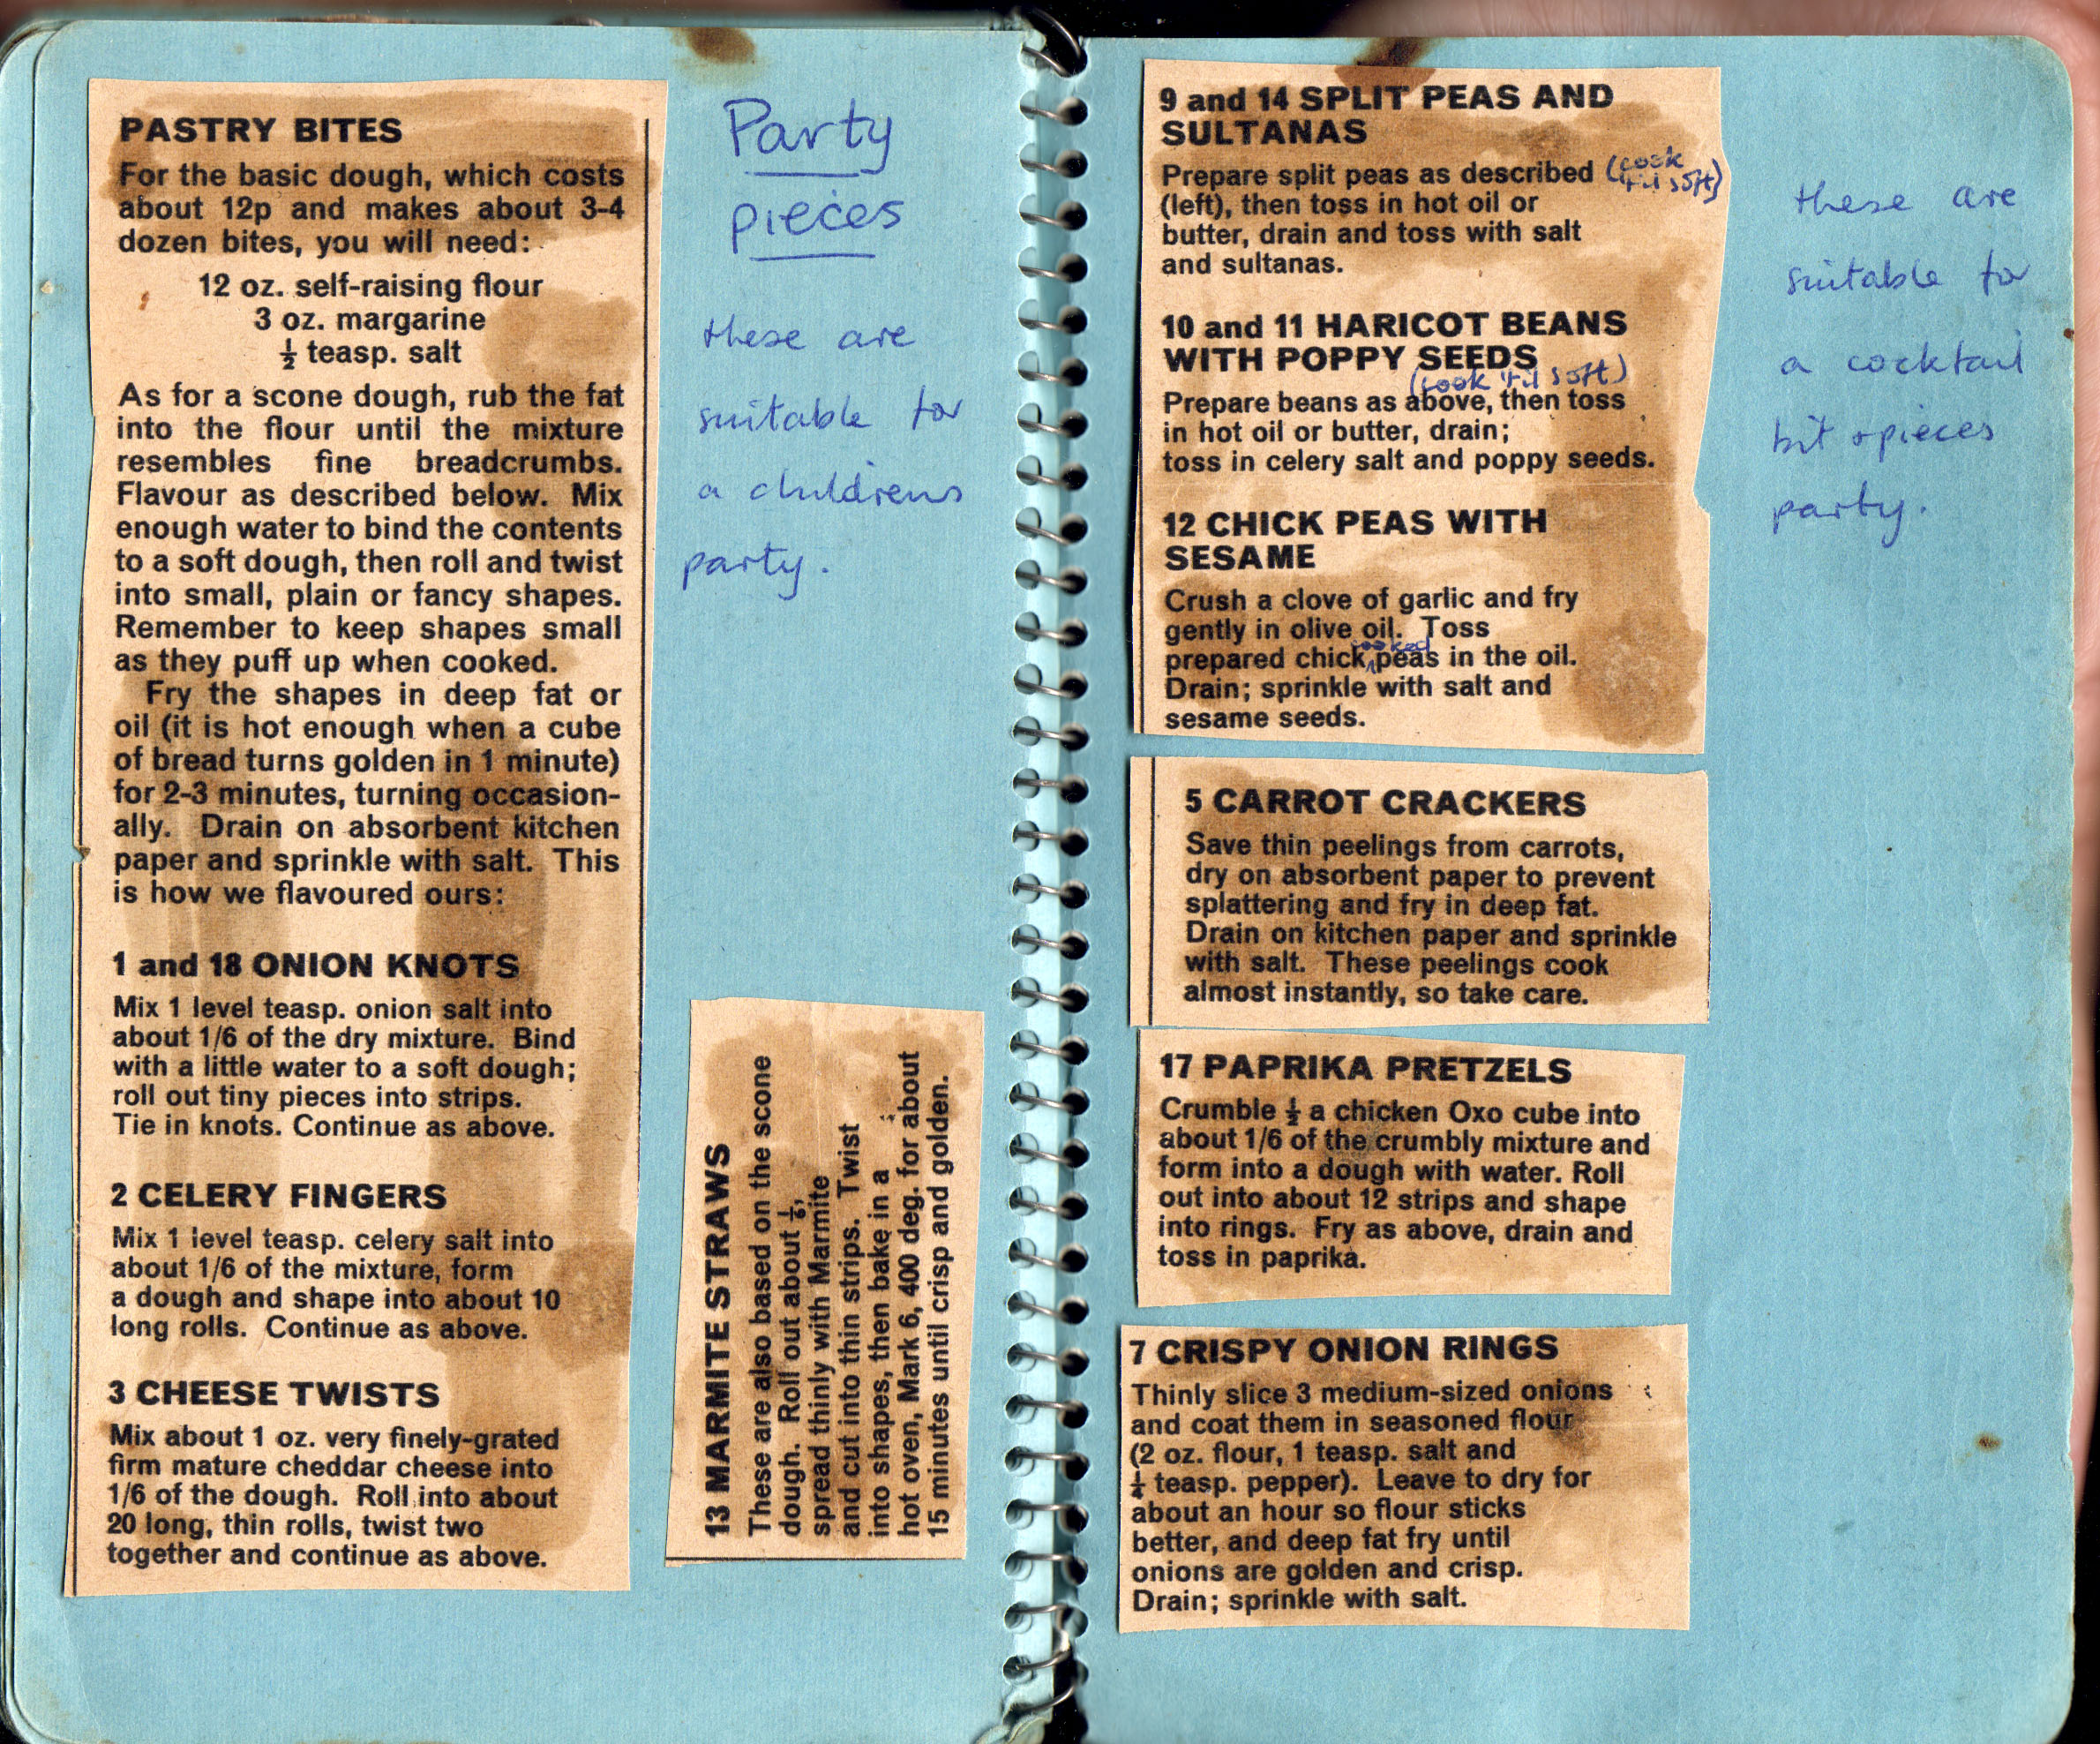 PASTRY BITES
For the basic dough, which costs
about 12p and makes about 3-4
dozen bites, you will need:
12 oz. self-raising flour
3 oz. margarine
½ teasp. salt
As for a scone dough, rub the fat
into the flour until the mixture
resembles fine breadcrumbs.
Flavour as described below. Mix
enough water to bind the contents
to a soft dough, then roll and twist
into small, plain or fancy shapes.
Remember to keep shapes small
as they puff up when cooked.
Fry the shapes in deep fat or
oil (it is hot enough when a cube
of bread turns golden in 1 minute)
for 2-3 minutes, turning occasion-
ally. Drain on absorbent kitchen
paper and sprinkle with salt. This
is how we flavoured ours:
1 and 18 ONION KNOTS
Mix 1 level teasp. onion salt into
about 1/6 of the dry mixture. Bind
with a little water to a soft dough;
roll out tiny pieces into strips.
Tie in knots. Continue as above.
2 CELERY FINGERS
Mix 1 level teasp. celery salt into
about 1/6 of the mixture, form
a dough and shape into about 10
long rolls. Continue as above.
3 CHEESE TWISTS
Mix about 1 oz. very finely-grated
firm mature cheddar cheese into
1/6 of the dough. Roll into about
20 long, thin rolls, twist two
together and continue as above.
Party
pieces
these are
suitable for
a childrens
party.
13 MARMITE STRAWS
These are also based on the scone
dough. Roll out about ⅙,
spread thinly with Marmite
and cut into thin strips. Twist
into shapes, then bake in a
hot oven, Mark 6, 400 deg. for about
15 minutes until crisp and golden.
9 and 14 SPLIT PEAS AND
SULTANAS
Prepare split peas as described (cook
'til soft)
(left), then toss in hot oil or
butter, drain and toss with salt
and sultanas.
10 and 11 HARICOT BEANS
WITH POPPY SEEDS
(cook 'til soft)
Prepare beans as above, then toss
in hot oil or butter, drain;
toss in celery salt and poppy seeds.
12 CHICK PEAS WITH
SESAME
Crush a clove of garlic and fry
gently in olive oil. Toss
cooked
prepared chick peas in the oil.
Drain; sprinkle with salt and
sesame seeds.
5 CARROT CRACKERS
Save thin peelings from carrots,
dry on absorbent paper to prevent
splattering and fry in deep fat.
Drain on kitchen paper and sprinkle
with salt. These peelings cook
almost instantly, so take care.
17 PAPRIKA PRETZELS
Crumble ½ a chicken Oxo cube into
about 1/6 of the crumbly mixture and
form into a dough with water. Roll
out into about 12 strips and shape
into rings. Fry as above, drain and
toss in paprika.
7 CRISPY ONION RINGS
Thinly slice 3 medium-sized onions
and coat them in seasoned flour
(2 oz. flour, 1 teasp. salt and
¼ teasp. pepper). Leave to dry for
about an hour so flour sticks
better, and deep fat fry until
onions are golden and crisp.
Drain; sprinkle with salt.
these are
suitable for
a cocktail
bit + pieces
party.